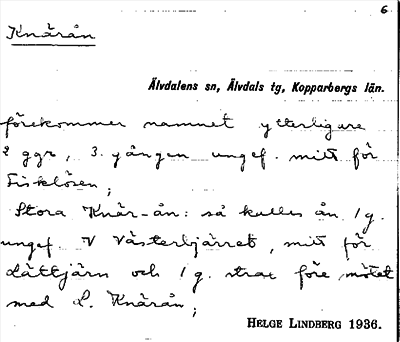 6
Knärån
Älvdalens sn, Älvdals tg, Kopparbergs län.
förekommer namnet ytterligare
2 ggr, 3. gången ungef. mitt för
Fisklösen;
Stora Knär-ån: så kallas ån 1 g.
ungef. V Västerbjärret, mitt för
Lättjärn och 1 g. strax före mötet
med L. Knärån;
HELGE LINDBERG 1936.